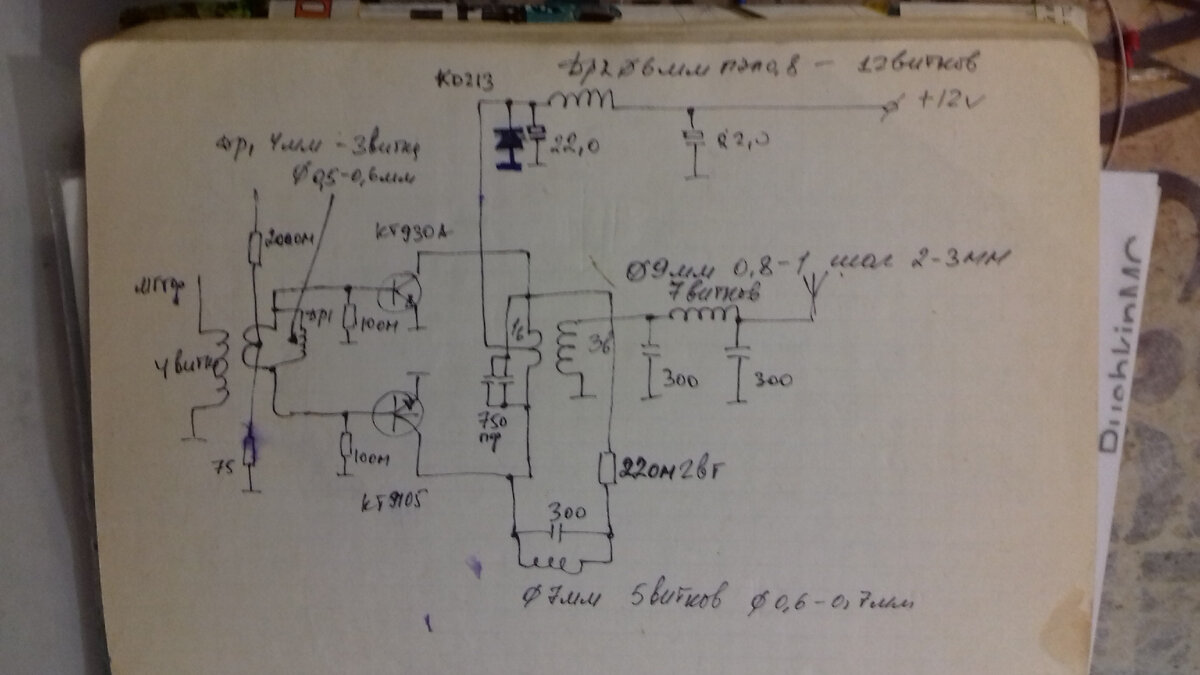 КД213
Др2 Ø6мм ПЭЛ0,8 - 12витков
+12v
22,0
22,0
Др1 4мм - 3витка
Ø0,5-0,6мм
200Ом
КТ930А
Ø9мм 0,8-1 шаг 2-3мм
7витков
МГТФ
др1
100м
1в
3в
4витка
300
300
750
пф
75
100м
КТ9105
220м2вт
300
Ø7мм 5витков Ø0,6-0,7мм